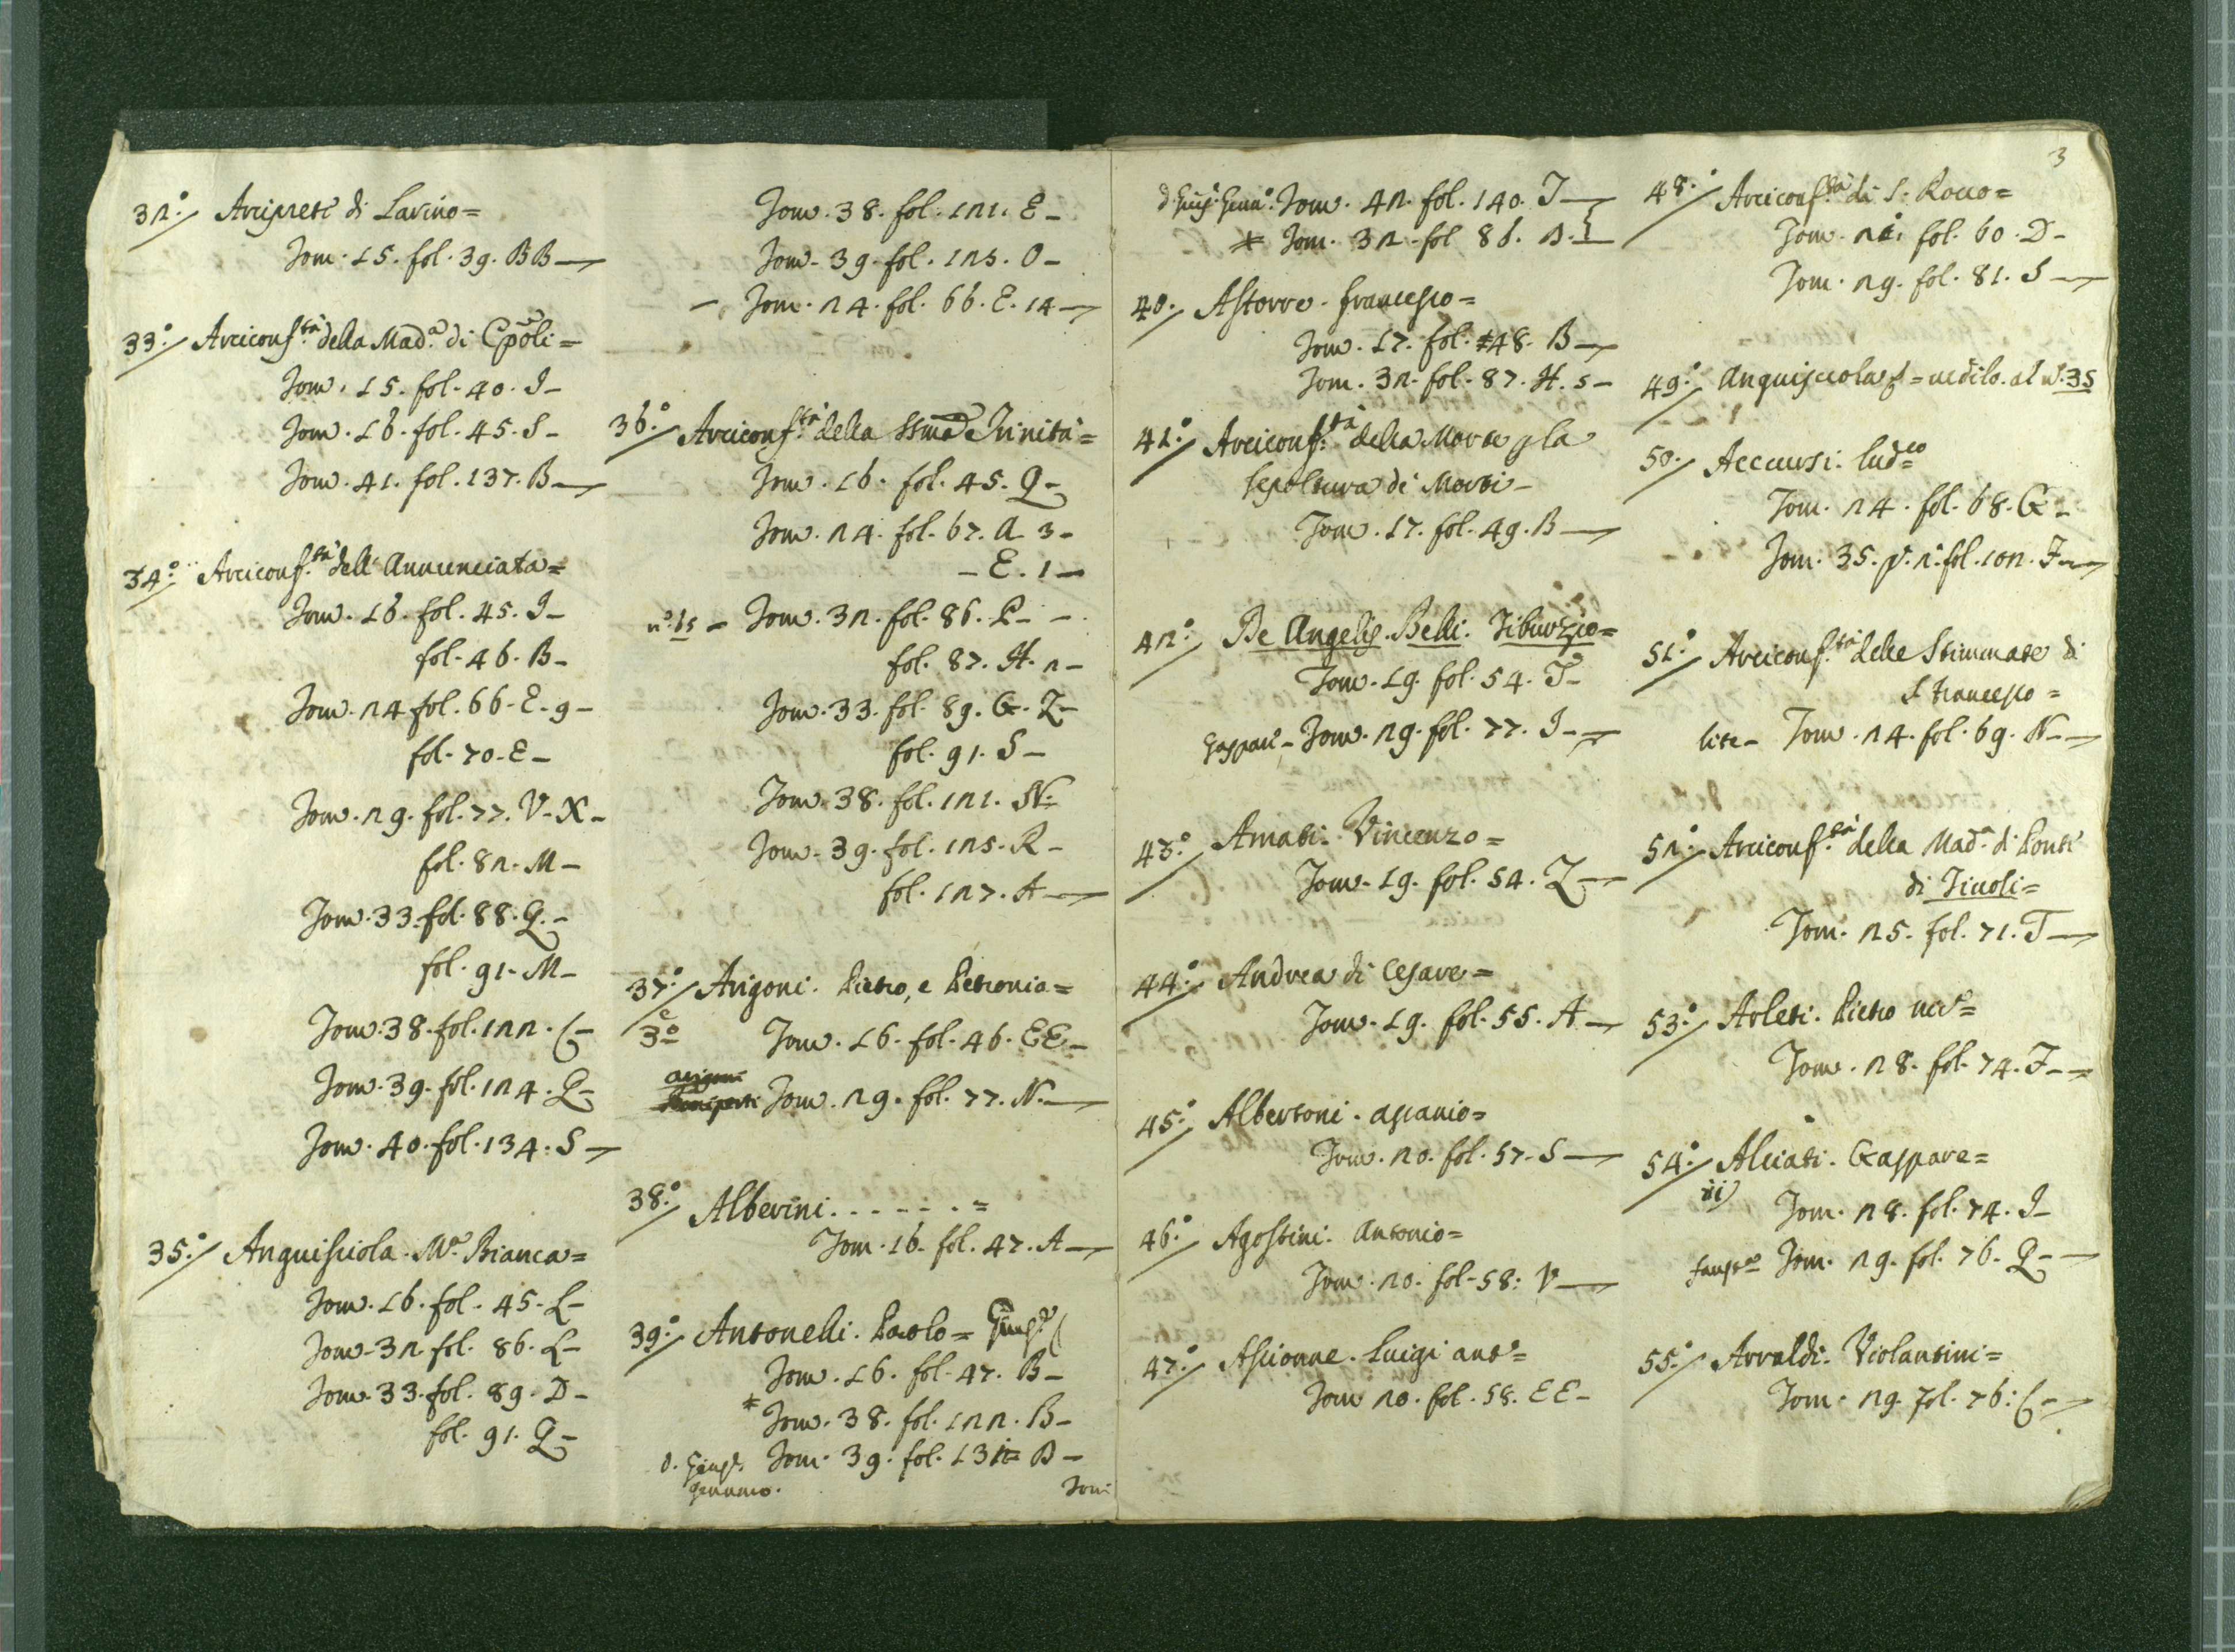 32.° Arcipreti di Lavino=
Tom. 15. fol. 39. BB—
33.° Arciconf.tà della Mad.a di Cpoli=
Tom. 15. fol. 40. I–
Tom. 16. fol. 45. S–
Tom. 41. fol. 137. B—
34.° Arciconf.tà dell'Annunciata=
Tom. 16. fol. 45. I–
fol. 46. B–
Tom. 24. fol. 66. E. 9–
fol. 70. E–
Tom. 29. fol. 77. V. X–
fol. 82. M–
Tom. 33. fol. 88. Q.–
fol. 91. M–
Tom. 38. fol. 122. C–
Tom. 39. fol. 124. Q–
Tom. 40. fol. 134. S—
35.° Anguisciola. M.a Bianca=
Tom. 16. fol. 45. L–
Tom. 32. fol. 86. L–
Tom. 33. fol. 89. D–
fol. 91. Q–
Tom. 38. fol. 121. E–
Tom. 39. fol. 125. O–
– Tom. 24. fol. 66. E. 14—
36.° Arciconf.tà della SSma Trinità=
Tom. 16. fol. 45. Q–
Tom. 24. fol. 67. A. 3–
– E. 1–
n.° 65 – Tom. 32. fol. 86. P– –
fol. 87. H. 2–
Tom. 33. fol. 89. G. Z–
fol. 91. S–
Tom. 38. fol. 121. N–
Tom. 39. fol. 125. R–
fol. 127. A—
37.° Arigoni. Pietro, e Petronia=
e 3° Tom. 16. fol. 46. EE–
arigoni
Tom. 29. fol. 77. N.—
38.° Alberini. - - - - - . =
Tom. 16. fol. 47. A—
39.° Antonelli. Paolo= Giusp.e
Tom. 16. fol. 47. B–
* Tom. 38. fol. 122. B–
D. Giusp. Tom. 39. fol. 132= B–
Gennaro. Tom:
3
d. Giusp. Genn.o Tom. 42. fol. 140. T—
* Tom. 32. fol 86. B. 1—
40. Astorre. Francesco=
Tom. 17. fol. 48. B—
Tom. 32. fol. 87. H. 5–
41.° Arciconf.tà della Morte p la
sepoltura di Morti–
Tom. 17. fol. 49. B—
42.° De Angelis. Belli. Tiburzio=
Tom. 19. fol. 54. T–
Gaspari– Tom. 29. fol. 77. I–
43.° Amati. Vincenzo=
Tom. 19. fol. 54. Z—
44.° Andrea di Cesare=
Tom. 19. fol. 55. A–
45.° Albertoni. Ascanio=
Tom. 20. fol. 57. S—
46.° Agostini. Antonio=
Tom. 20. fol. 58. V—
47.° Ascionne. Luigi Ant.o=
Tom 20. fol. 58. EE–
48.° Arciconf.tà di S. Rocco=
Tom. 21. fol. 60. D–
Tom. 29. fol. 81. S—
49.° Anguisciola = vedilo. al n.° 35
50. Accursi. Lud.co
Tom. 24. fol. 68. G–
Tom. 35. p. 2.a fol. 102. F—
51.° Arciconf.tà delle Stimmate di
S Francesco=
lite– Tom. 24. fol. 69. N–
52.° Arciconf.tà della Mad.a di Ponte
di Tivoli=
Tom. 25. fol. 71. T—
53.° Arleti. Pietro
Tom. 28. fol. 74. F–
54.° Alciati. Gaspare=
Tom. 28. fol. 74. I–
Tom. 29. fol. 76. Q–
55.° Arnaldi. Violantini=
Tom. 29. fol. 76. C–